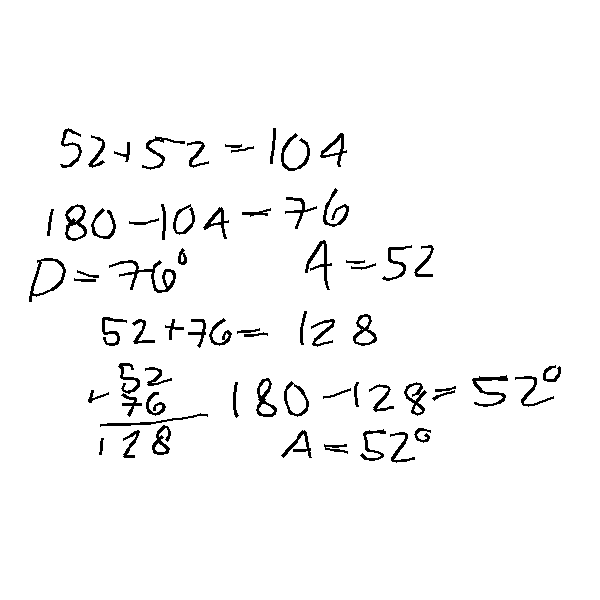 52+52=104
180-104=76
D=76° A=52
52+76=128
52
+76
128
180-128=52°
A=52°